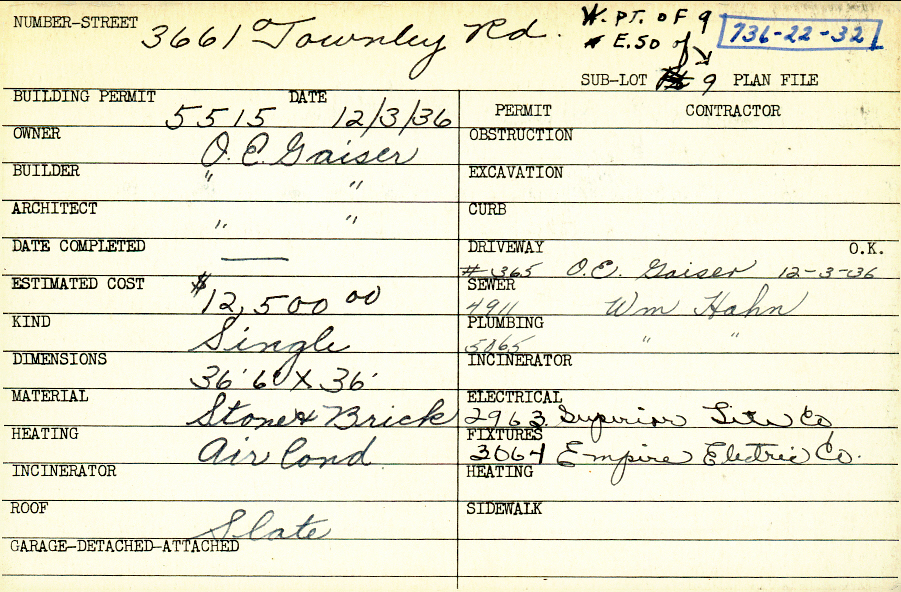 NUMBER-STREET 3661 Townley Rd. W. PT. OF 9 736-22-32
E. 50 of
SUB-LOT 9 PLAN FILE
BUILDING PERMIT 5515 DATE 12/3/36
PERMIT CONTRACTOR
OWNER O. E. Gaiser
OBSTRUCTION
BUILDER " "
EXCAVATION
ARCHITECT " "
CURB
DATE COMPLETED —
DRIVEWAY O.K.
# 365 O.E. Gaiser 12-3-36
ESTIMATED COST $12,500 00
SEWER
4911 Wm Hahn
KIND Single
PLUMBING
5065 " "
DIMENSIONS 36' 6" X 36'
INCINERATOR
MATERIAL Stone & Brick
ELECTRICAL
2963 Superior Lite Co
HEATING Air Cond.
FIXTURES
3064 Empire Electric Co.
INCINERATOR
HEATING
ROOF Slate
SIDEWALK
GARAGE-DETACHED-ATTACHED